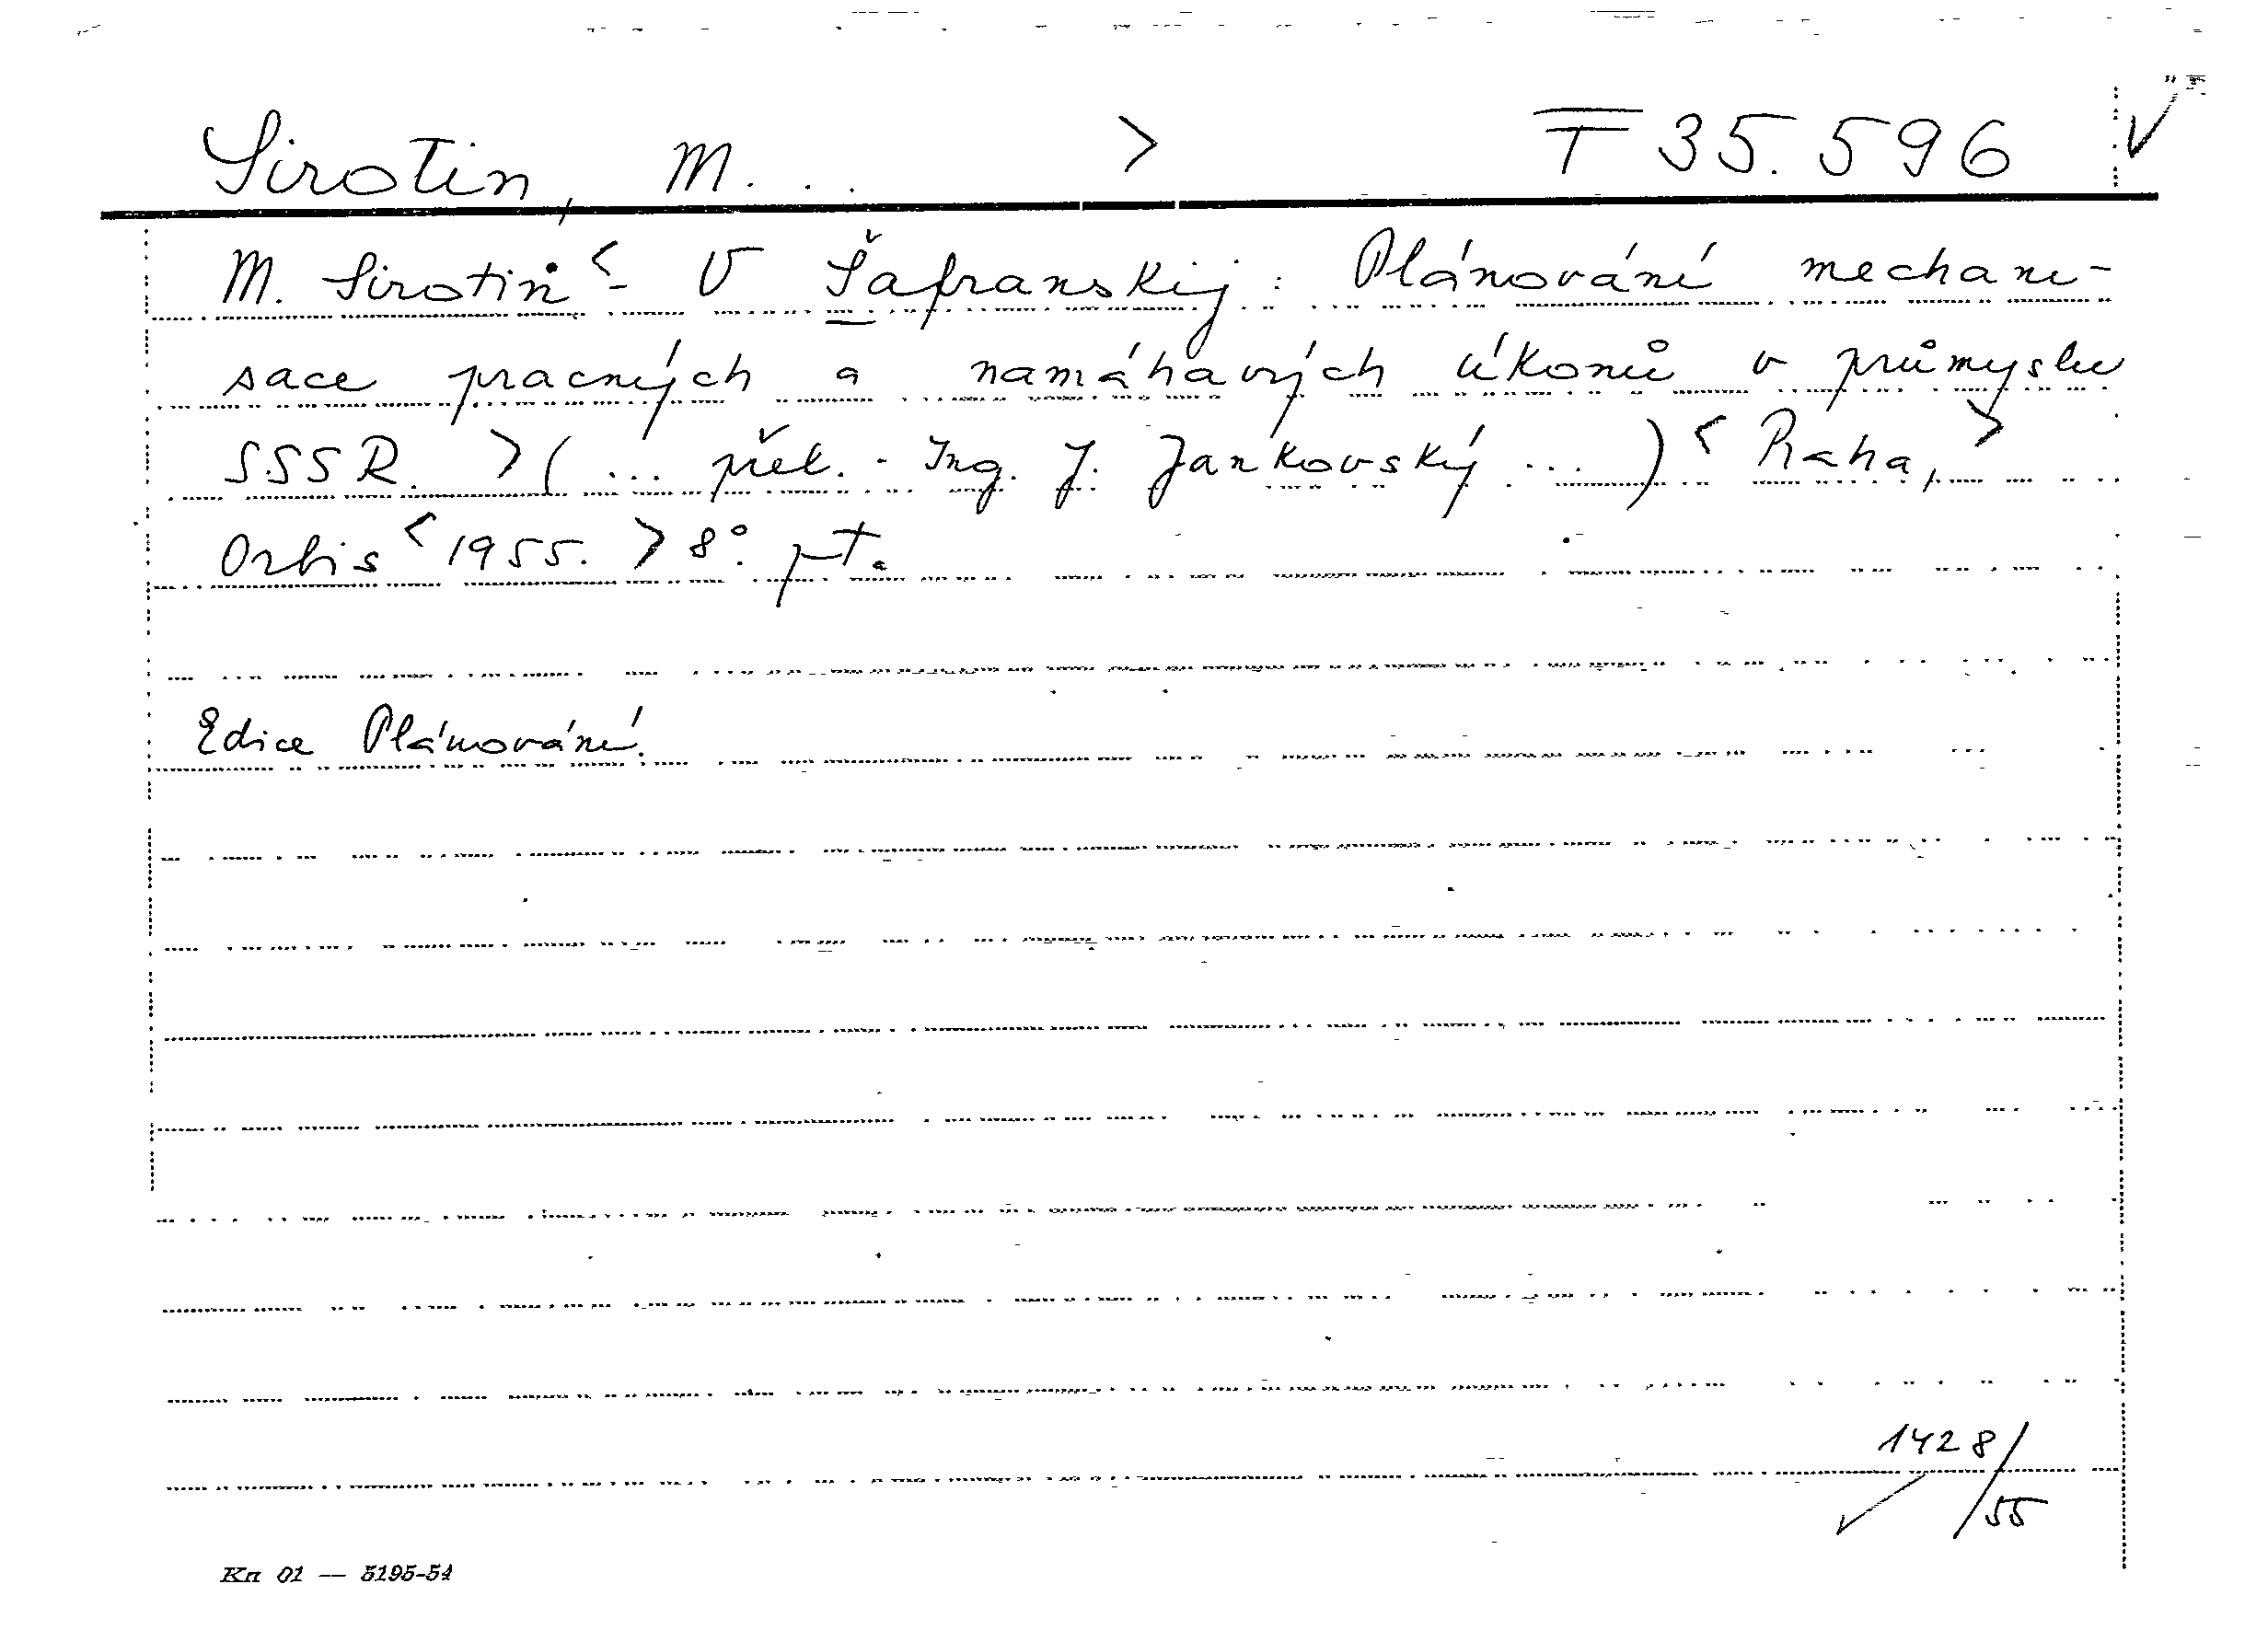 Sirotin, M. . . > T 35.596
M. Sirotin < - V Šafranskij : Plánování mechani-
sace pracných a namáhavých úkonů v průmyslu
SSSR. > ( ... přel. - Ing. J. Jankovský ... ) < Praha, >
Orbis < 1955. > 8°. pt.
Edice Plánování.
1428/
/55
Kn 01 — 5195-54